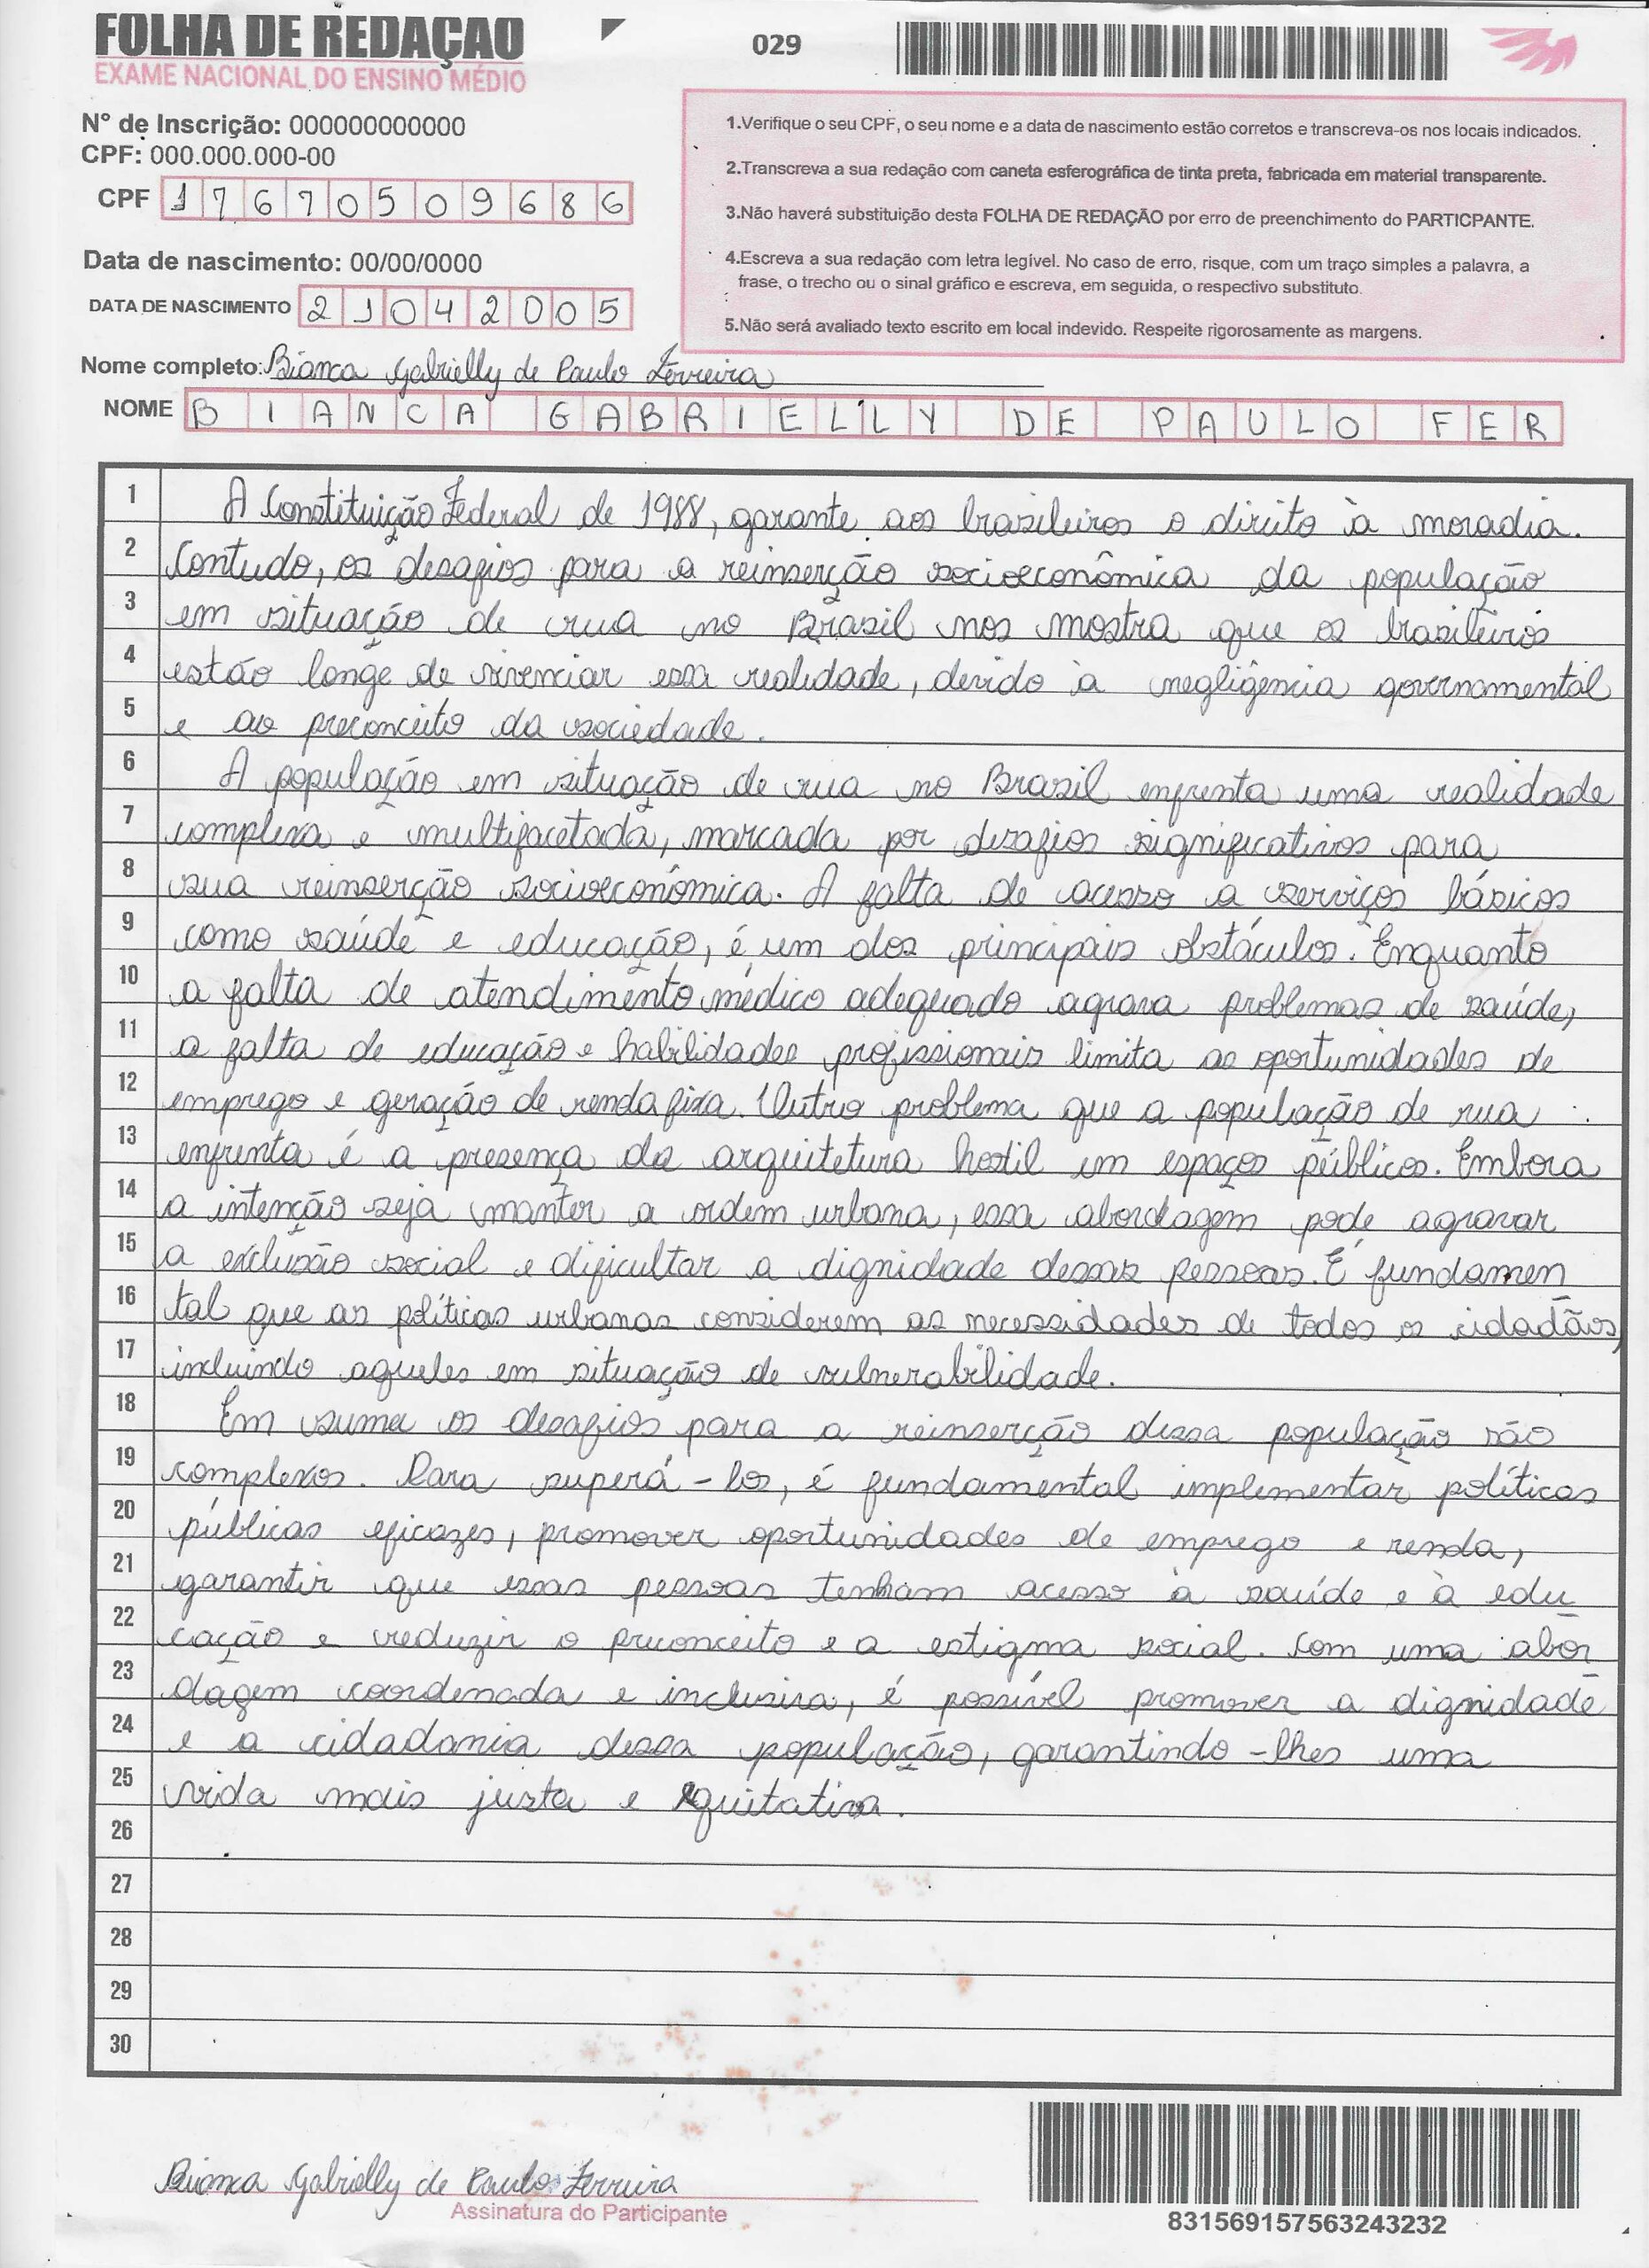 FOLHA DE REDAÇÃO
EXAME NACIONAL DO ENSINO MÉDIO
029
Nº de Inscrição: 000000000000
CPF: 000.000.000-00
CPF 17670509686
Data de nascimento: 00/00/0000
DATA DE NASCIMENTO 21042005
1.Verifique o seu CPF, o seu nome e a data de nascimento estão corretos e transcreva-os nos locais indicados.
2.Transcreva a sua redação com caneta esferográfica de tinta preta, fabricada em material transparente.
3.Não haverá substituição desta FOLHA DE REDAÇÃO por erro de preenchimento do PARTICPANTE.
4.Escreva a sua redação com letra legível. No caso de erro, risque, com um traço simples a palavra, a
frase, o trecho ou o sinal gráfico e escreva, em seguida, o respectivo substituto.
5.Não será avaliado texto escrito em local indevido. Respeite rigorosamente as margens.
Nome completo: Bianca Gabrielly de Paulo Ferreira
NOME BIANCA GABRIELLY DE PAULO FER
1 A Constituição Federal de 1988, garante aos brasileiros o direito à moradia.
2 Contudo, os desafios para a reinserção socioeconômica da população
3 em situação de rua no Brasil nos mostra que os brasileiros
4 estão longe de vivenciar essa realidade, devido à negligência governamental
5 e ao preconceito da sociedade.
6 A população em situação de rua no Brasil enfrenta uma realidade
7 complexa e multifacetada, marcada por desafios significativos para
8 sua reinserção socioeconômica. A falta de acesso a serviços básicos
9 como saúde e educação, é um dos principais obstáculos. Enquanto
10 a falta de atendimento médico adequado agrava problemas de saúde,
11 a falta de educação e habilidades profissionais limita as oportunidades de
12 emprego e geração de renda fixa. Outro problema que a população de rua
13 enfrenta é a presença da arquitetura hostil em espaços públicos. Embora
14 a intenção seja manter a ordem urbana, essa abordagem pode agravar
15 a exclusão social e dificultar a dignidade dessas pessoas. É fundamen
16 tal que as políticas urbanas considerem as necessidades de todos os cidadãos,
17 incluindo aqueles em situação de vulnerabilidade.
18 Em suma os desafios para a reinserção dessa população são
19 complexos. Para superá-los, é fundamental implementar políticas
20 públicas eficazes, promover oportunidades de emprego e renda,
21 garantir que essas pessoas tenham acesso à saúde e à edu
22 cação e reduzir o preconceito e a estigma social. Com uma abor
23 dagem coordenada e inclusiva, é possível promover a dignidade
24 e a cidadania dessa população, garantindo-lhes uma
25 vida mais justa e equitativa.
26
27
28
29
30
Bianca Gabrielly de Paulo Ferreira
Assinatura do Participante
831569157563243232